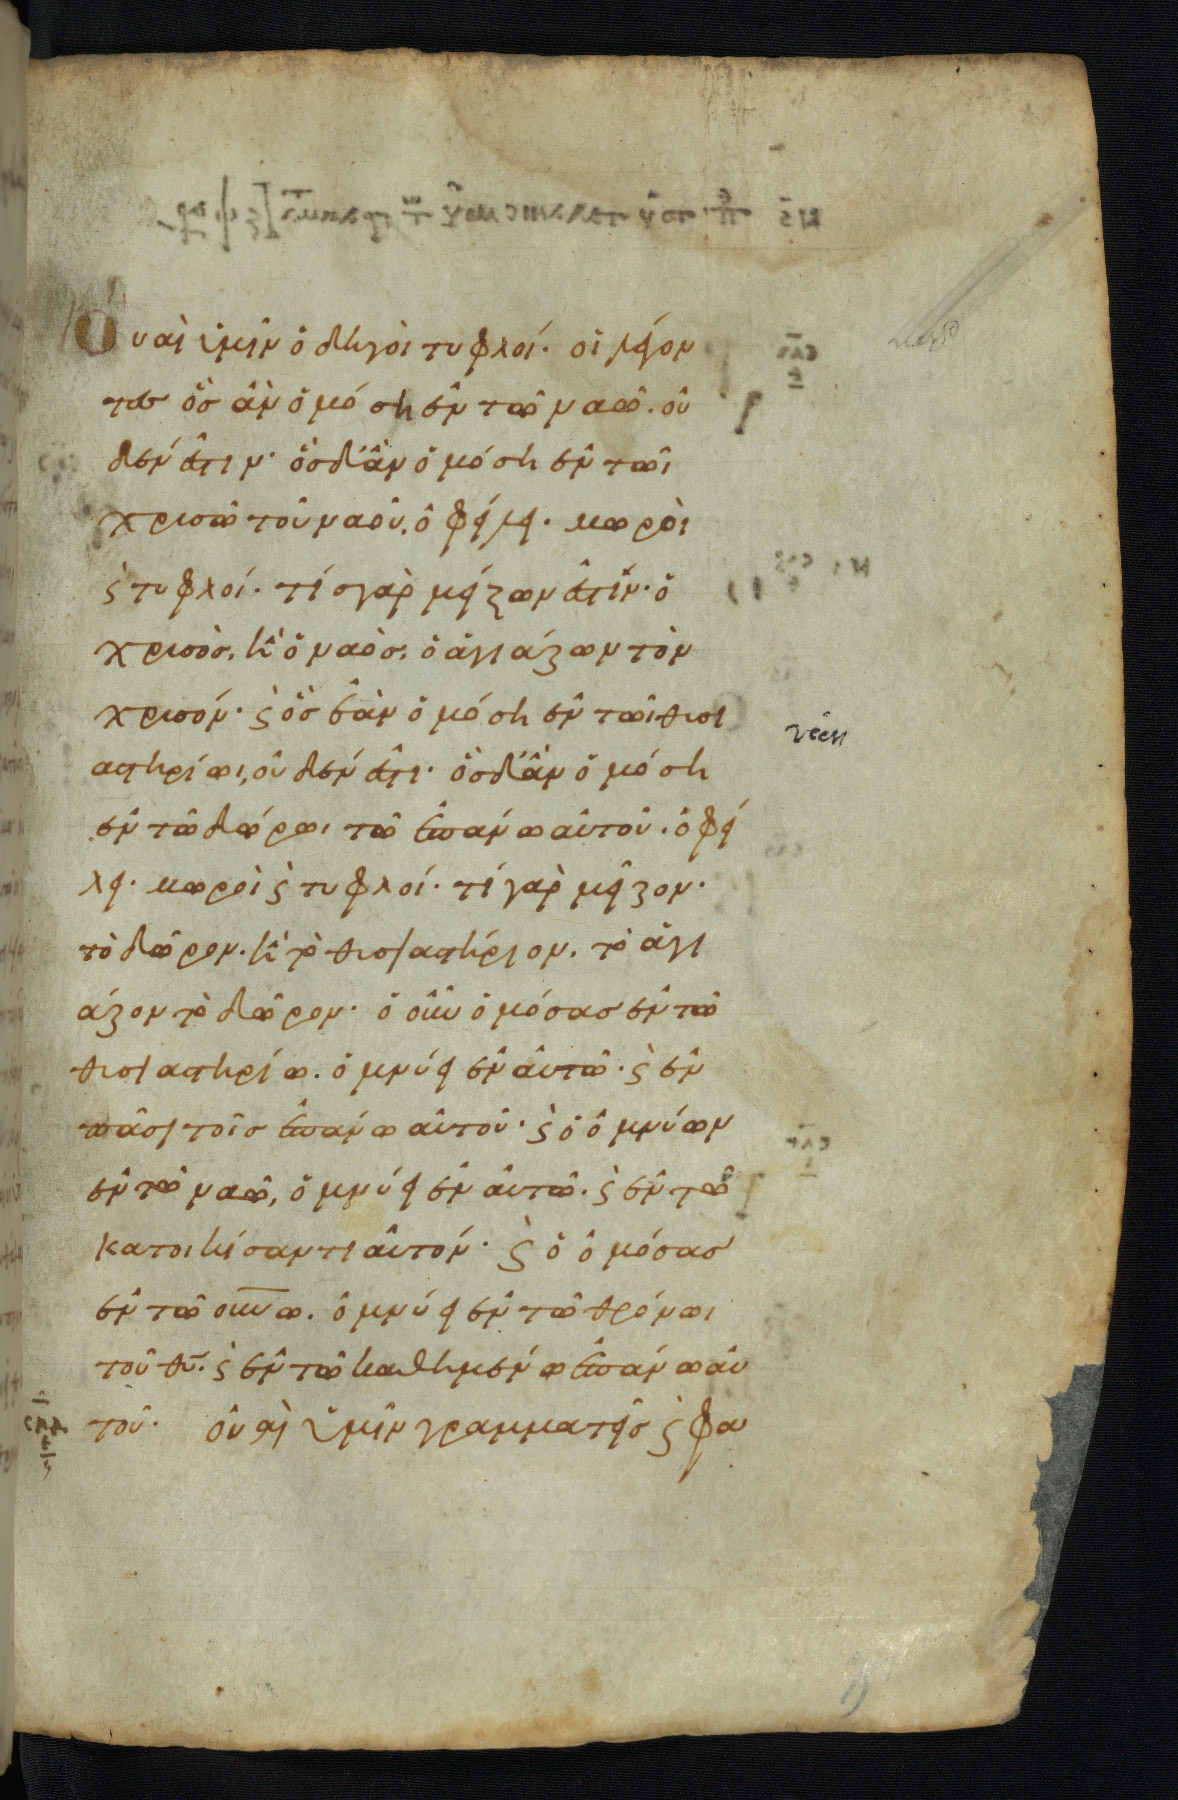 Οὐαὶ ὑμῖν ὁδηγοὶ τυφλοί· οἱ λέγον
τες ὃς ἂν ὀμόση ἐν τῶ ναῶ. οὐ
δέν ἐστιν· ὃς δ' ἂν ὀμόση ἐν τῶι
χρυσῶ τοῦ ναοῦ, ὀφείλει. μωροὶ
ϗ τυφλοί· τίς γὰρ μείζων ἐστὶν· ὁ
χρυσὸς, ἢ ὁ ναὸς, ὁ ἁγιάζων τὸν
χρυσόν· ϗ ὃς ἐὰν ὀμόση ἐν τῶι θυσι
αστηρίωι, οὐδέν ἐστι· ὃς δ' ἂν ὀμόση
ἐν τῶ δώρωι τῶ ἐπάνω αὐτοῦ. ὀφεί
λει. μωροὶ ϗ τυφλοί· τί γὰρ μεῖζον·
τὸ δῶρον. ἢ τὸ θυσιαστήριον. τὸ ἁγι
άζον τὸ δῶρον· ὁ οὖν ὀμόσας ἐν τῶ
θυσιαστηρίω. ὀμνύει ἐν αὐτῶ· ϗ ἐν
πᾶσι τοῖς ἐπάνω αὐτοῦ· ϗ ὁ ὀμνύων
ἐν τῶ ναῶ, ὀμνύει ἐν αὐτῶ. ϗ ἐν τῶ
κατοικήσαντι αὐτόν· ϗ ὁ ὀμόσας
ἐν τῶ ουνω. ὀμνύει ἐν τῶ θρόνωι
τοῦ θυ. ϗ ἐν τῶ καθημένω ἐπάνω αὐ
τοῦ. οὐαὶ ὑμῖν γραμματεῖς ϗ φα